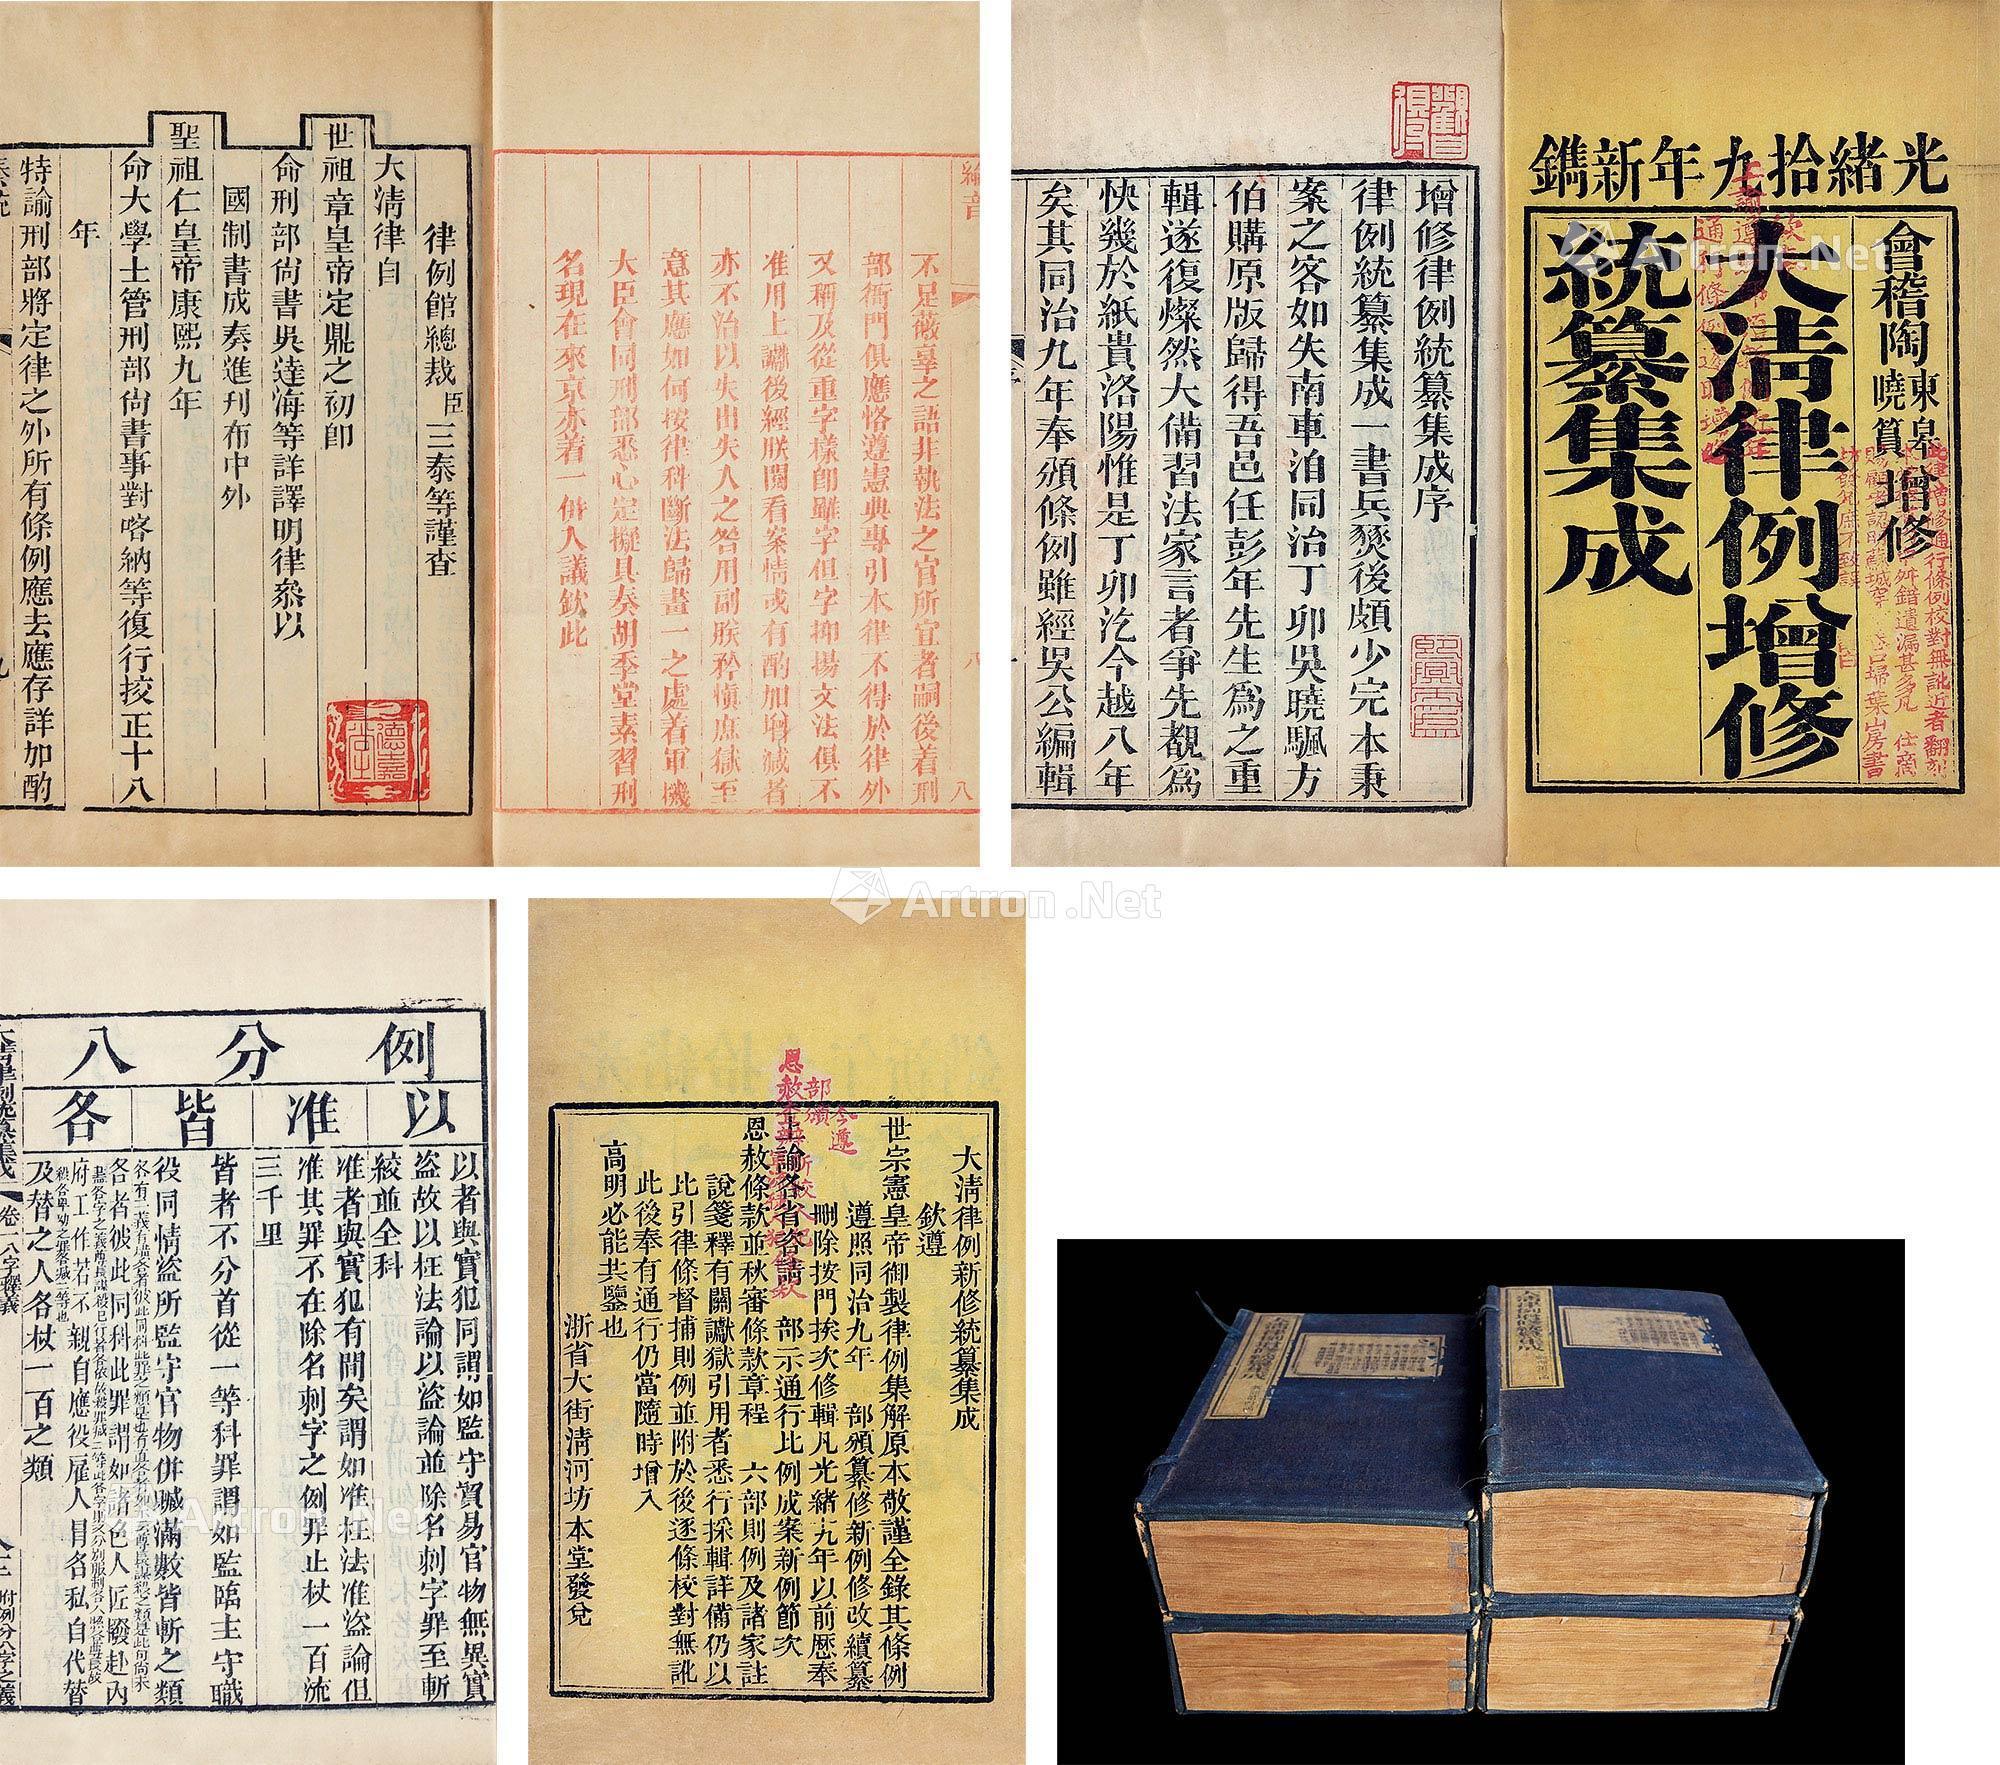 律例館總裁臣三泰等謹查
大淸律自
世祖章皇帝定鼎之初卽
命刑部尙書吳達海等詳譯明律叅以
國制書成奏進刊布中外
聖祖仁皇帝康熙九年
命大學士管刑部尙書事對喀納等復行挍正十八
年
特諭刑部將定律之外所有條例應去應存詳加酌
綸音
不足蔽辜之語非執法之官所宜者嗣後着刑
部衙門俱應恪遵憲典專引本律不得於律外
又稱及從重字樣卽雖字但字抑揚文法俱不
准用上讞後經朕閱看案情或有酌加增減者
亦不治以失出失入之咎用副朕矜愼庶獄至
意其應如何按律科斷法歸畫一之處着軍機
大臣會同刑部悉心定擬具奏胡季堂素習刑
名現在來京亦着一併入議欽此
八
增修律例統纂集成序
律例統纂集成一書兵燹後頗少完本秉
案之客如失南車洎同治丁卯吳曉颿方
伯購原版歸得吾邑任彭年先生爲之重
輯遂復燦然大備習法家言者爭先覩爲
快幾於紙貴洛陽惟是丁卯迄今越八年
矣其同治九年奉頒條例雖經吳公編輯
光緒拾九年新鐫
會稽陶東皋曉篔增修
大淸律例增修
統纂集成
例分八
以
准
皆
各
以者與實犯同謂如監守貿易官物無異實
盜故以枉法論以盜論並除名刺字罪至斬
絞並全科
准者與實犯有間矣謂如准枉法准盜論但
准其罪不在除名刺字之例罪止杖一百流
三千里
皆者不分首從一等科罪謂如監臨主守職
役同情盜所監守官物併贓滿數皆斬之類
各者彼此同科此罪謂如諸色人匠撥赴內
府工作若不親自應役雇人冐名私自代替
及替之人各杖一百之類
大淸律例新修統纂集成
欽遵
世宗憲皇帝御製律例集解原本敬謹全錄其條例
遵照同治九年 部頒纂修新例修改續纂
刪除按門挨次修輯凡光緒十九年以前歷奉
上諭各省咨請 部示通行比例成案新例節次
恩赦條款並秋審條款章程 六部則例及諸家註
說箋釋有關讞獄引用者悉行採輯詳備仍以
比引律條督捕則例並附於後逐條校對無訛
此後奉有通行仍當隨時增入
高明必能共鑒也
浙省大街淸河坊本堂發兌
Artron.Net